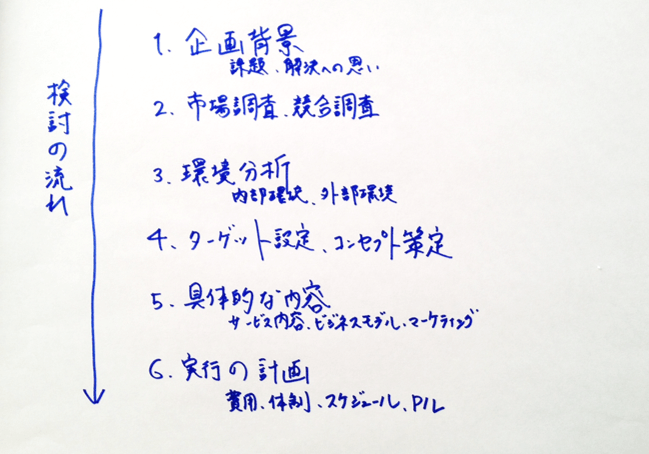 検討の流れ
1. 企画背景
課題、解決への思い
2. 市場調査、競合調査
3. 環境分析
内部環境、外部環境
4、ターゲット設定、コンセプト策定
5. 具体的な内容
サービス内容、ビジネスモデル、マーケティング
6. 実行の計画
費用、体制、スケジュール、P/L